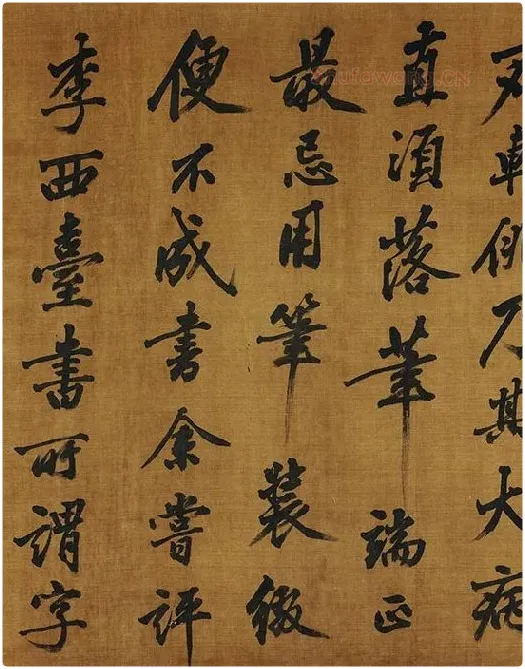 其大病
直須落筆端正
最忌用筆裝綴
便不成書余嘗評
李西臺書所謂字